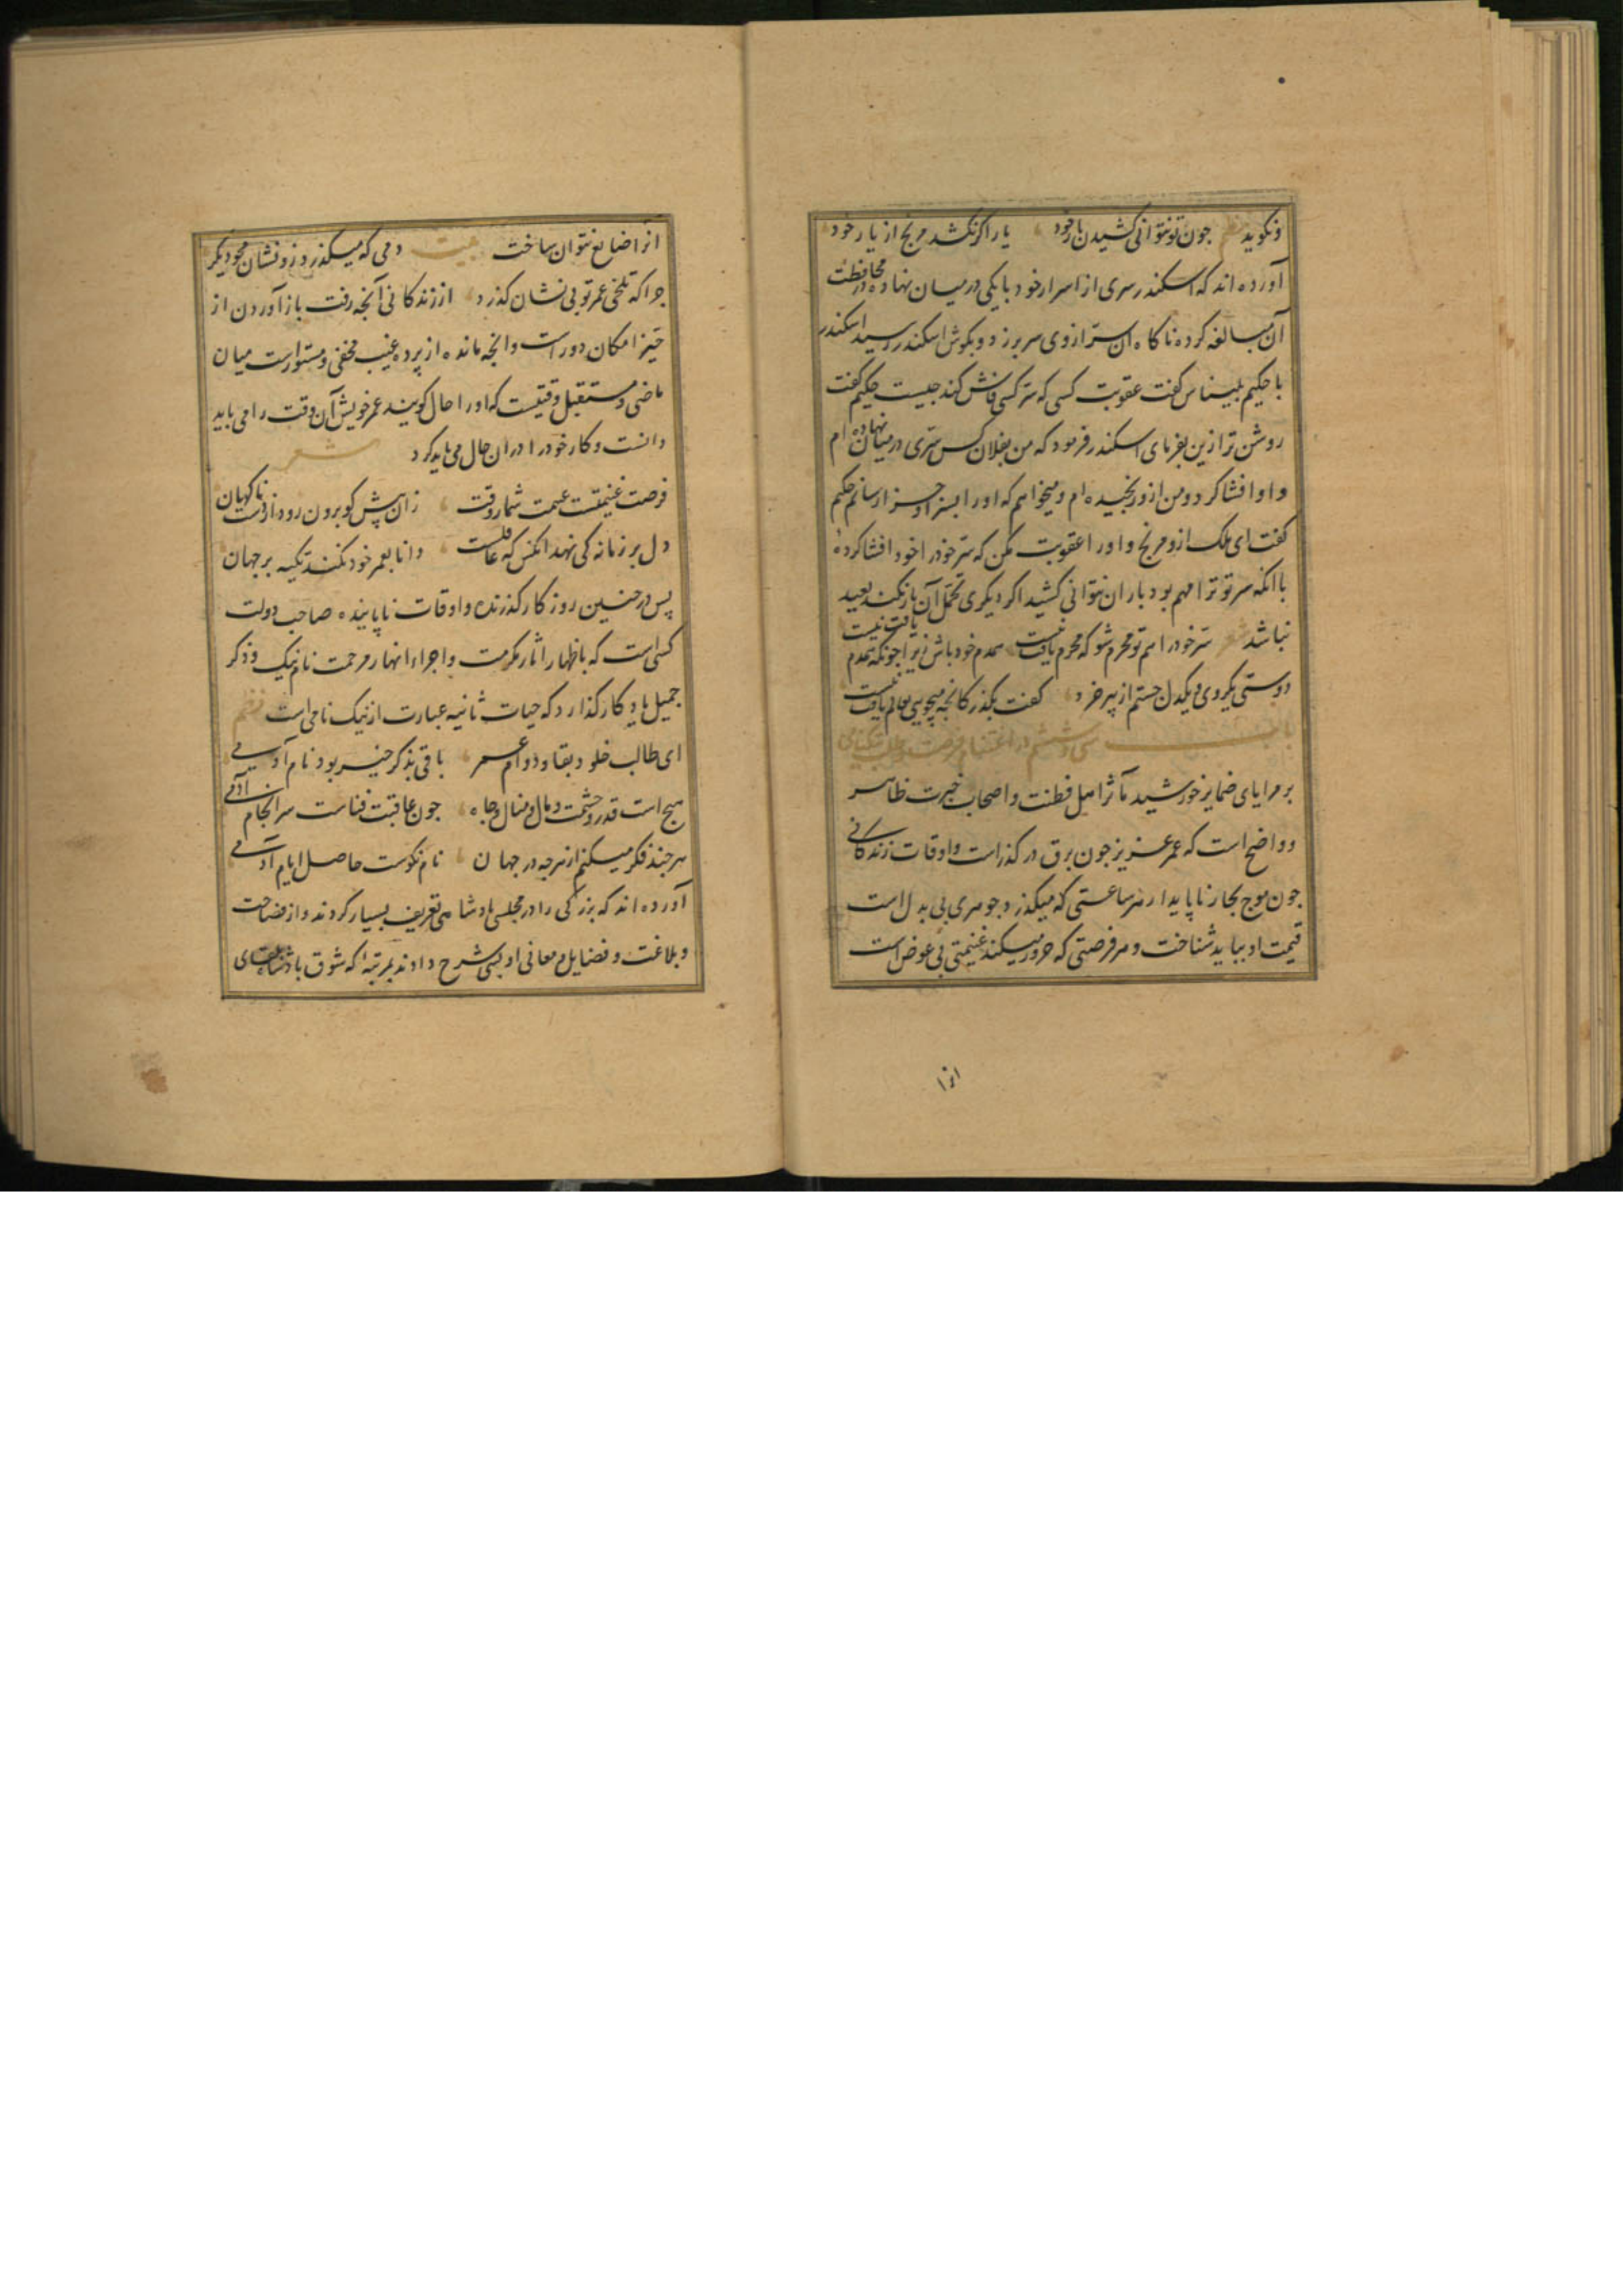 ونکوید نظم جون تو نتوانی کشیدن بار خود یار اگر نکشد مرنج از یار خود
آورده اند که اسکندر سری از اسرار خود با یکی در میان نهاده و در محافظت
آن مبالغه کرده ناکاه ان سرّ از وی سر بر زد و بکوش اسکندر رسید اسکندر
با حکیم بلیناس کفت عقوبت کسی که سرّ کسی فاش کند جیست حکیم کفت
روشن تر ازین بفرمای اسکندر فرمود که من بفلان کس سرّی در میان نهاده ام
و او افشا کرد و من از و رنجیده ام و میخواهم که او را بسزا و جزا رسانم حکیم
کفت ای ملک از و مرنج و او را عقوبت مکن که سرّ خود را خود افشا کرده
با انکه سر تو ترا مهم بود بار ان نتوانی کشید اکر دیکری تحمل آن بار نکند بعید
نباشد شعر سرّ خود را هم تو محرم شو که محرم یافت نیست همدم خود باش زیرا جونکه همدم یافت نیست
دوستی یکروی و یکدل جستم از پیر خرد کفت بکذر کانجه میجویی بعالم یافت نیست
باب سی و ششم در اغتنام فرصت و طلب نیکنامی
بر مرایای ضمایر خورشید مآثر اهل فطنت و اصحاب خبرت ظاهر
و واضح است که عمر عزیز جون برق در کذر است و اوقات زندکانی
جون موج بحار ناپایدار هر ساعتی که میکذرد جوهری بی بدل است
قیمت او بباید شناخت و هر فرصتی که مرور میکند غنیمتی بی عوض است
انرا
انرا ضایع نتوان ساخت بیت دمی که میکذرد زو نشان مجو دیکر
جرا که تلخی عمر تو بی نشان کذرد از زندکانی آنجه رفت باز آوردن از
حیّز امکان دور است و انجه مانده از پرده غیب مخفی و مستور است میان
ماضی و مستقبل وقتیست که او را حال کویند عمر خویش آن وقت را می باید
دانست و کار خود را در ان حال می باید کرد شعر
فرصت غنیمتست غنیمت شمار وقت زان پیش کو برون رود از دست ناکهان
دل بر زمانه کی نهد انکس که عاقلست دانا بعمر خود نکند تکیه بر جهان
پس در جنین روزکار کذرنده و اوقات ناپاینده صاحب دولت
کسی است که باظهار اثار مکرمت و اجراء انهار مرحمت نام نیک و ذکر
جمیل یادکار کذارد که حیات ثانیه عبارت از نیک نامی است نظم
ای طالب خلود بقا و دوام عمر باقی بذکر خیر بود نام آدمی
هیج است قدر و حشمت و مال و منال و جاه جون عاقبت فناست سرانجام آدمی
هر جند فکر میکنم از هرجه در جهان نام نکوست حاصل ایام آدمی
آورده اند که بزرکی را در مجلس پادشاهی تعریف بسیار کردند و از فصاحت
و بلاغت و فضایل و معانی او بسی شرح دادند بمرتبه که شوق پادشاه